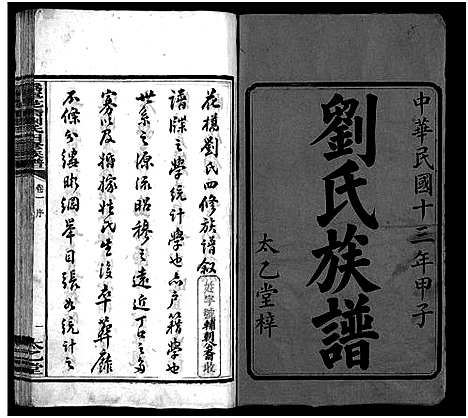 中華民國十三年甲子
劉氏族譜
太乙堂梓
花橋劉氏四修族譜叙
姓字號輔朝公裔收
譜牒之學統計學也亦戶籍學也
世系之源流昭穆之遠近丁口之多
寡以及婚嫁姓氏生沒卒葬靡
不條分縷晰綱舉目張如統計之
卷一 序
一
太乙堂